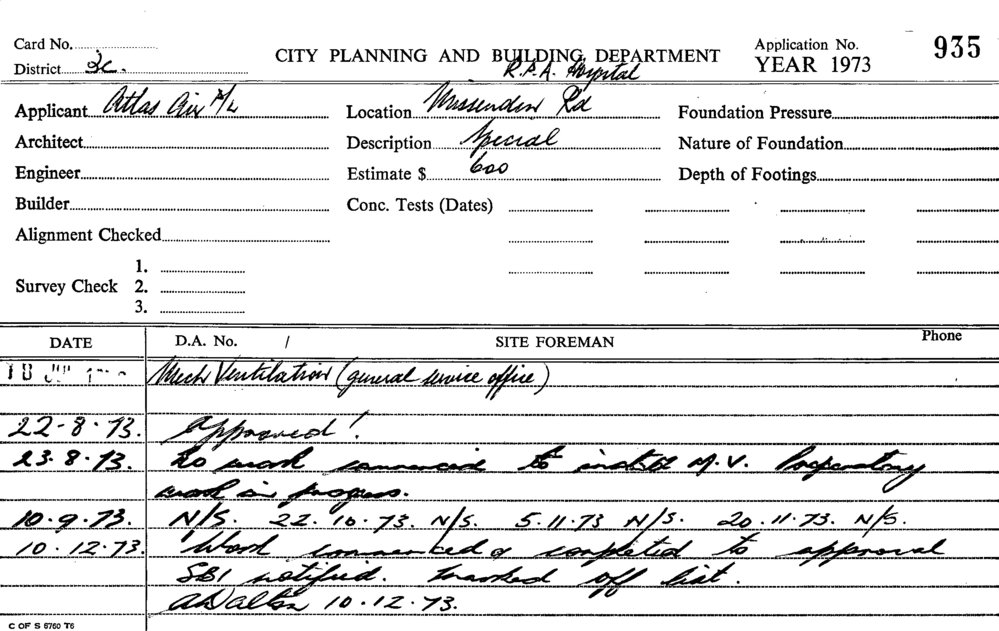 Card No.
CITY PLANNING AND BUILDING DEPARTMENT
Application No. 935
District
R.P.A. Hospital
YEAR 1973
Applicant Atlas Air P/L
Location Missenden Rd
Foundation Pressure
Architect
Description Special
Nature of Foundation
Engineer
Estimate $ 600
Depth of Footings
Builder
Conc. Tests (Dates)
Alignment Checked
1.
Survey Check 2.
3.
DATE D.A. No. / SITE FOREMAN Phone
Mech Ventilation (general service office)
22-8-73. Approved!
23.8.73. No work commenced to install M.V. Preparatory
work in progress.
10.9.73. N/S. 22.10.73. N/S. 5.11.73 N/S. 20.11.73. N/S.
10.12.73. Work commenced & completed to approval
SBI notified. Marked off list.
A Dalton 10.12.73.
C OF S 6760 T6